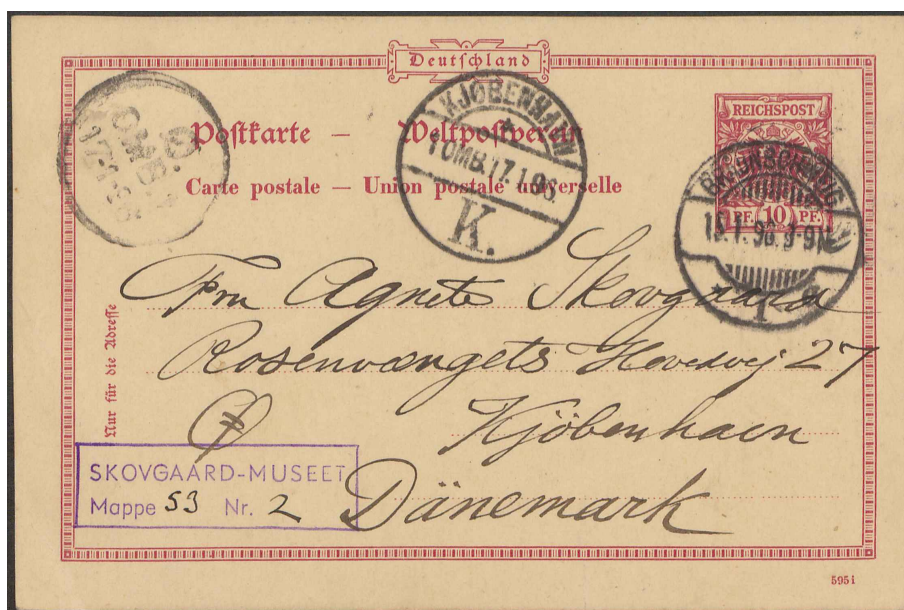 Deutschland
Postkarte — Weltpostverein
Carte postale — Union postale universelle
REICHSPOST
PF. 10 PF.
KJØBENHAVN
1 OMB. 17.1.96.
K.
BRAUNSCHWEIG
1
Nur für die Adresse
Fru Agnete Skovgaard
Rosenvængets Hovedvej 27
Kjöbenhavn
Dänemark
SKOVGAARD-MUSEET
Mappe 53 Nr. 2
5951